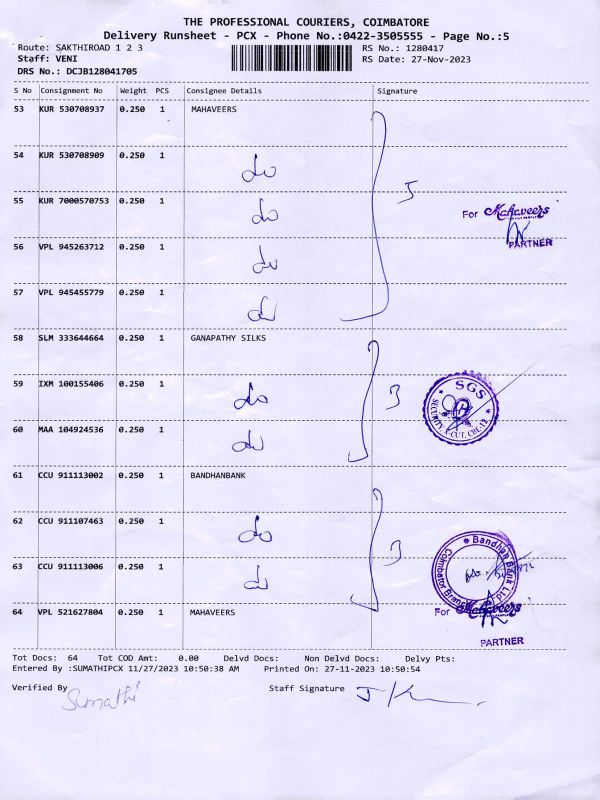 THE PROFESSIONAL COURIERS, COIMBATORE
Delivery Runsheet - PCX - Phone No.:0422-3505555 - Page No.:5
Route: SAKTHIROAD 1 2 3 RS No.: 1280417
Staff: VENI RS Date: 27-Nov-2023
DRS No.: DCJB128041705
S No Consignment No Weight PCS Consignee Details Signature
53 KUR 530708937 0.250 1 MAHAVEERS
54 KUR 530708909 0.250 1 do
55 KUR 7000570753 0.250 1 do 5
For Mahaveers
PARTNER
56 VPL 945263712 0.250 1 do
57 VPL 945455779 0.250 1 do
58 SLM 333644664 0.250 1 GANAPATHY SILKS
59 IXM 100155406 0.250 1 do 3
SGS
SECURITY, X-CUT, CBE-12
60 MAA 104924536 0.250 1 do
61 CCU 911113002 0.250 1 BANDHANBANK
62 CCU 911107463 0.250 1 do 3
Bandhan Bank Ltd
Coimbator Branch
63 CCU 911113006 0.250 1 do
64 VPL 521627804 0.250 1 MAHAVEERS
For Mahaveers
PARTNER
Tot Docs: 64 Tot COD Amt: 0.00 Delvd Docs: Non Delvd Docs: Delvy Pts:
Entered By :SUMATHIPCX 11/27/2023 10:50:38 AM Printed On: 27-11-2023 10:50:54
Verified By Sumathi Staff Signature